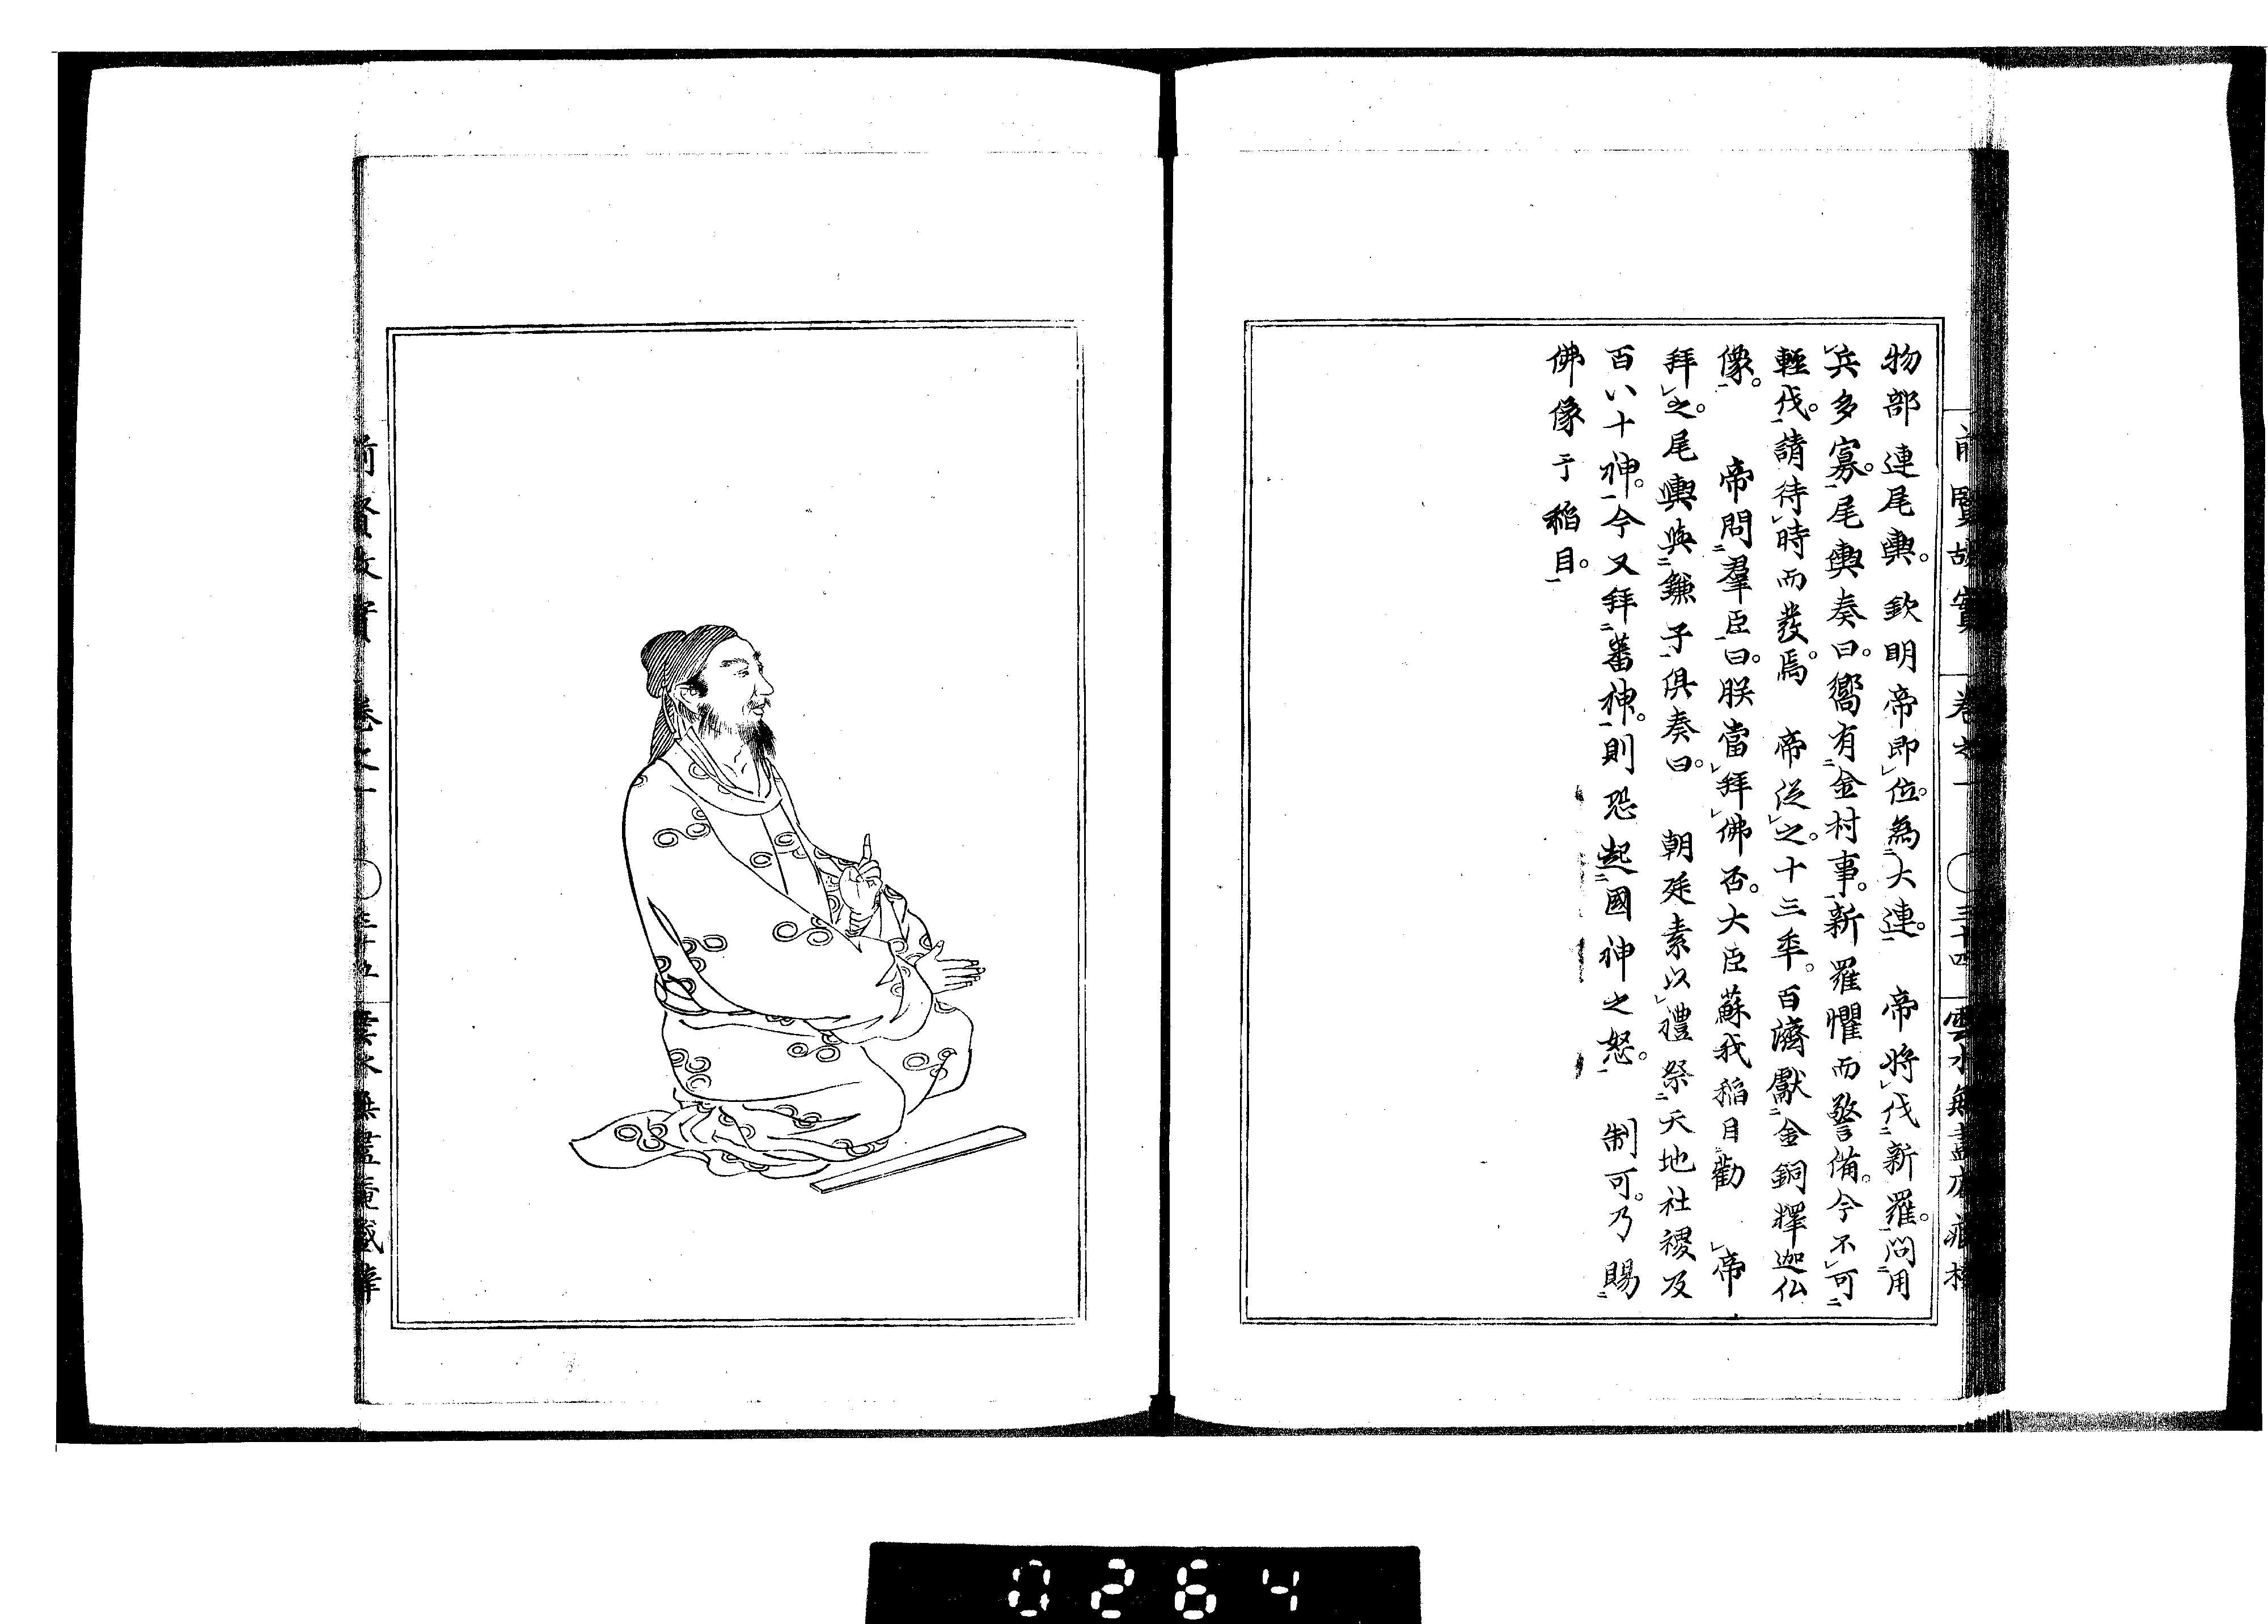 前賢故實 卷之一 三十四 雲水無盡庵藏
物部連尾輿。欽明帝即位。為大連。 帝將伐新羅。問用
兵多寡。尾輿奏曰。嚮有金村事。新羅懼而警備。今不可
輕伐。請待時而發焉。 帝從之。十三年。百濟獻金銅釋迦仏
像。 帝問羣臣曰。朕當拜佛否。大臣蘇我稲目勸 帝
拜之。尾輿與鎌子俱奏曰。 朝廷素以禮祭天地社稷及
百八十神。今又拜蕃神。則恐起國神之怒。 制可。乃賜
佛像于稲目。
前賢故實 卷之一 三十五 雲水無盡庵藏
0264